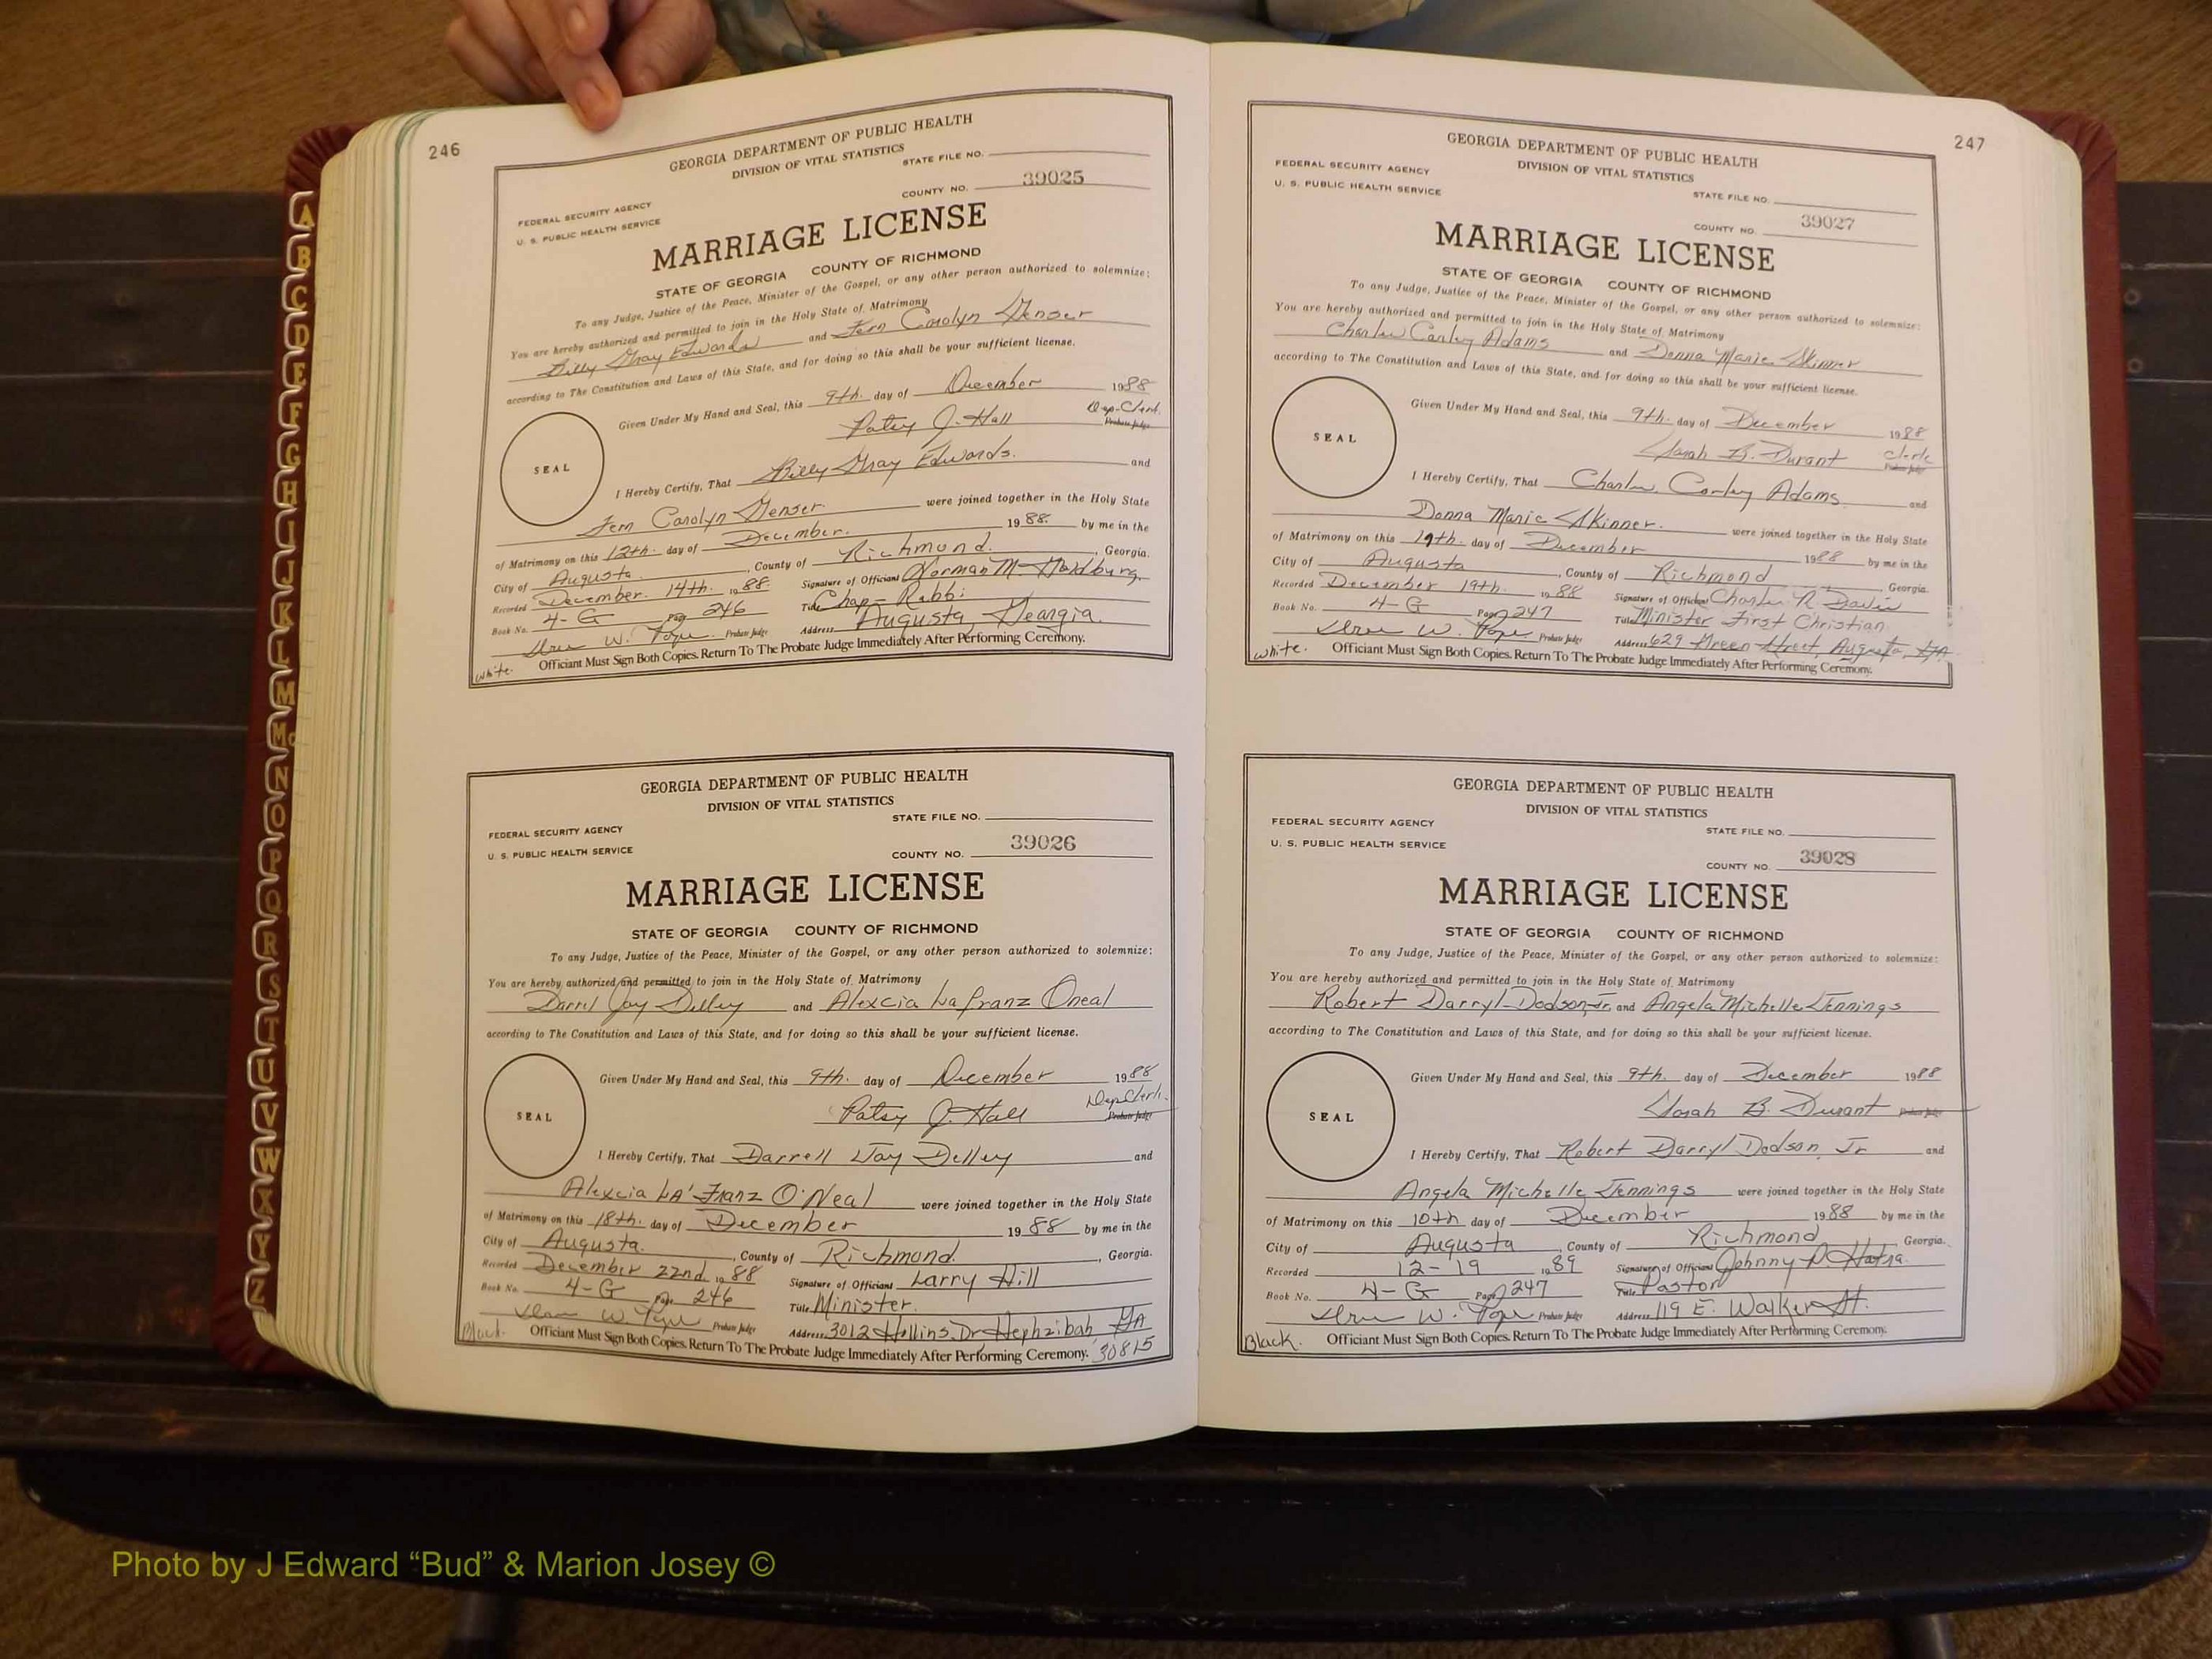 246
GEORGIA DEPARTMENT OF PUBLIC HEALTH
DIVISION OF VITAL STATISTICS
STATE FILE NO.
COUNTY NO. 39025
FEDERAL SECURITY AGENCY
U. S. PUBLIC HEALTH SERVICE
MARRIAGE LICENSE
STATE OF GEORGIA COUNTY OF RICHMOND
To any Judge, Justice of the Peace, Minister of the Gospel, or any other person authorized to solemnize:
You are hereby authorized and permitted to join in the Holy State of Matrimony
Billy Gray Edwards and Fern Carolyn Genser
according to The Constitution and Laws of this State, and for doing so this shall be your sufficient license.
Given Under My Hand and Seal, this 9th. day of December 1988
Patsy J. Hall Dep-Clerk. Probate Judge
SEAL
I Hereby Certify, That Billy Gray Edwards. and
Fern Carolyn Genser. were joined together in the Holy State
of Matrimony on this 12th. day of December. 1988. by me in the
City of Augusta. , County of Richmond. , Georgia.
Recorded December. 14th. 1988. Signature of Officiant Norman M.
Book No. 4-G Page 246 Title Chap- Rabbi
W. Pope Probate Judge Address Augusta, Georgia.
white. Officiant Must Sign Both Copies. Return To The Probate Judge Immediately After Performing Ceremony.
GEORGIA DEPARTMENT OF PUBLIC HEALTH
DIVISION OF VITAL STATISTICS
STATE FILE NO.
FEDERAL SECURITY AGENCY
U. S. PUBLIC HEALTH SERVICE
COUNTY NO. 39026
MARRIAGE LICENSE
STATE OF GEORGIA COUNTY OF RICHMOND
To any Judge, Justice of the Peace, Minister of the Gospel, or any other person authorized to solemnize:
You are hereby authorized and permitted to join in the Holy State of Matrimony
Darrel Jay Dilley and Alexcia La Franz Oneal
according to The Constitution and Laws of this State, and for doing so this shall be your sufficient license.
Given Under My Hand and Seal, this 9th. day of December 1988
Patsy J. Hall Dep Clerk. Probate Judge
SEAL
I Hereby Certify, That Darrell Jay Dilley and
Alexcia LA' Franz O'Neal were joined together in the Holy State
of Matrimony on this 18th. day of December 1988 by me in the
City of Augusta. , County of Richmond. , Georgia.
Recorded December 22nd 1988 Signature of Officiant Larry Hill
Book No. 4-G Page 246 Title Minister.
W. Pope Probate Judge Address 3012 Hollins Dr Hephzibah, GA
30815
Black. Officiant Must Sign Both Copies. Return To The Probate Judge Immediately After Performing Ceremony.
247
GEORGIA DEPARTMENT OF PUBLIC HEALTH
DIVISION OF VITAL STATISTICS
FEDERAL SECURITY AGENCY
U. S. PUBLIC HEALTH SERVICE
STATE FILE NO.
COUNTY NO. 39027
MARRIAGE LICENSE
STATE OF GEORGIA COUNTY OF RICHMOND
To any Judge, Justice of the Peace, Minister of the Gospel, or any other person authorized to solemnize:
You are hereby authorized and permitted to join in the Holy State of Matrimony
Charles Conley Adams and Donna Marie Skinner
according to The Constitution and Laws of this State, and for doing so this shall be your sufficient license.
Given Under My Hand and Seal, this 9th. day of December 1988
Sarah B. Durant Clerk Probate Judge
SEAL
I Hereby Certify, That Charles Conley Adams and
Donna Marie Skinner. were joined together in the Holy State
of Matrimony on this 19th. day of December 1988 by me in the
City of Augusta , County of Richmond , Georgia.
Recorded December 19th. 1988 Signature of Officiant Charles R
Book No. 4-G Page 247 Title Minister First Christian
W. Pope Probate Judge Address 629 Green Street, Augusta, GA
white. Officiant Must Sign Both Copies. Return To The Probate Judge Immediately After Performing Ceremony.
GEORGIA DEPARTMENT OF PUBLIC HEALTH
DIVISION OF VITAL STATISTICS
FEDERAL SECURITY AGENCY
U. S. PUBLIC HEALTH SERVICE
STATE FILE NO.
COUNTY NO. 39028
MARRIAGE LICENSE
STATE OF GEORGIA COUNTY OF RICHMOND
To any Judge, Justice of the Peace, Minister of the Gospel, or any other person authorized to solemnize:
You are hereby authorized and permitted to join in the Holy State of Matrimony
Robert Darryl Dodson, Jr. and Angela Michelle Jennings
according to The Constitution and Laws of this State, and for doing so this shall be your sufficient license.
Given Under My Hand and Seal, this 9th. day of December 1988
Sarah B. Durant Probate Judge
SEAL
I Hereby Certify, That Robert Darryl Dodson, Jr and
Angela Michelle Jennings were joined together in the Holy State
of Matrimony on this 10th day of December 1988 by me in the
City of Augusta , County of Richmond , Georgia.
Recorded 12-19 1989 Signature of Officiant Johnny
Book No. 4-G Page 247 Title Pastor
W. Pope Probate Judge Address 119 E. Walker St.
Black. Officiant Must Sign Both Copies. Return To The Probate Judge Immediately After Performing Ceremony.
A
B
C
D
E
F
G
H
I
J
K
L
M
Mc
N
O
P
Q
R
S
T
U
V
W
X
Y
Z
Photo by J Edward “Bud” & Marion Josey ©